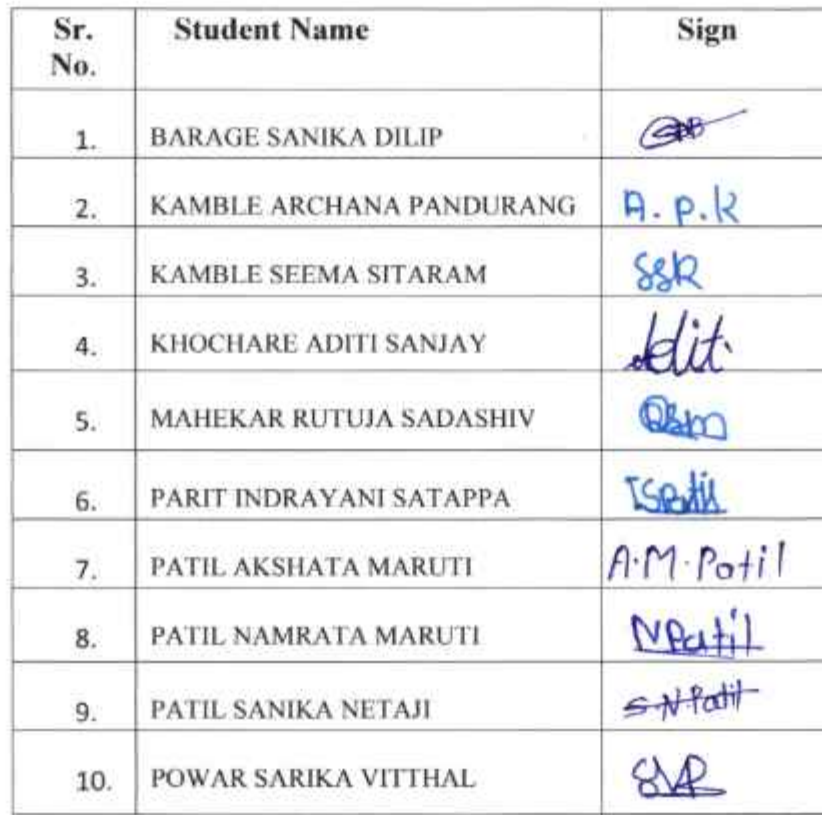 Sr. No. Student Name Sign
1. BARAGE SANIKA DILIP
2. KAMBLE ARCHANA PANDURANG A. P. K
3. KAMBLE SEEMA SITARAM SSK
4. KHOCHARE ADITI SANJAY Adit
5. MAHEKAR RUTUJA SADASHIV RSM
6. PARIT INDRAYANI SATAPPA
7. PATIL AKSHATA MARUTI A.M.Patil
8. PATIL NAMRATA MARUTI NPatil
9. PATIL SANIKA NETAJI S.N.Patil
10. POWAR SARIKA VITTHAL SVP